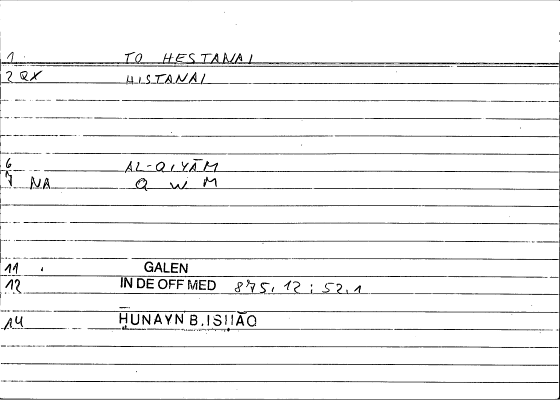 1 TO HESTANAI
2 QX HISTANAI
6 AL-QIYĀM
7 NA Q W M
11 GALEN
12 IN DE OFF MED 875,12 ; 52,1
14 ḤUNAYN B. ISḤĀQ